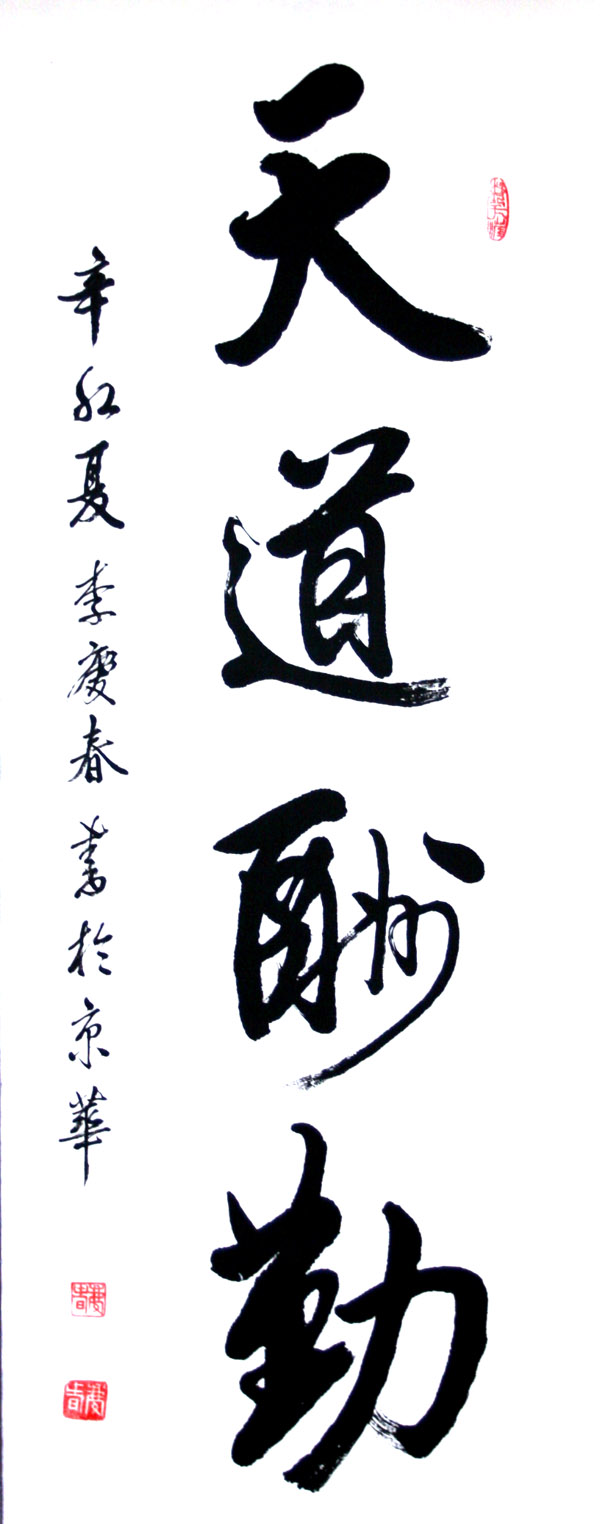 天道酬勤
辛卯夏 李慶春 書於京華